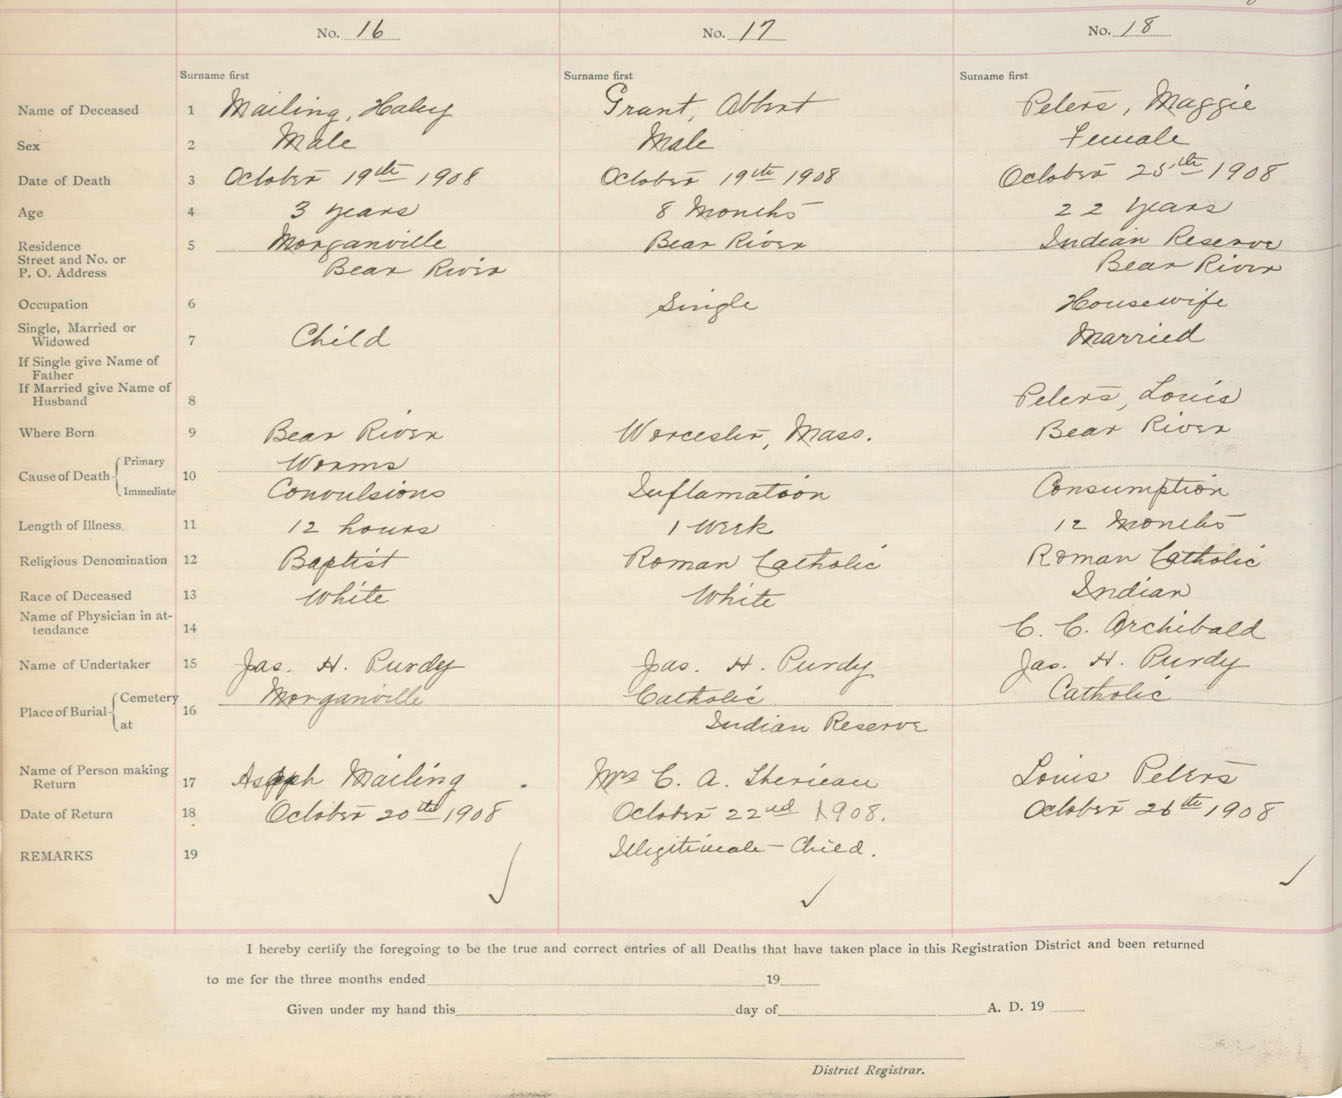 No. 16 No. 17 No. 18
Surname first Surname first Surname first
Name of Deceased 1 Mailing, Haley Grant, Albert Peters, Maggie
Sex 2 Male Male Female
Date of Death 3 October 19th 1908 October 19th 1908 October 25th 1908
Age 4 3 years 8 Months 22 years
Residence 5 Morganville Bear River Indian Reserve
Street and No. or
P. O. Address Bear River Bear River
Occupation 6 Single Housewife
Single, Married or
Widowed 7 Child Married
If Single give Name of
Father
If Married give Name of
Husband 8 Peters, Louis
Where Born 9 Bear River Worcester, Mass. Bear River
Cause of Death Primary 10 Worms
Immediate Convulsions Inflamation Consumption
Length of Illness. 11 12 hours 1 Week 12 Months
Religious Denomination 12 Baptist Roman Catholic Roman Catholic
Race of Deceased 13 White White Indian
Name of Physician in at-
tendance 14 C. C. Archibald
Name of Undertaker 15 Jas. H. Purdy Jas. H. Purdy Jas. H. Purdy
Place of Burial Cemetery 16 Morganville Catholic Catholic
at Indian Reserve
Name of Person making
Return 17 Mailing Mrs C. A. Louis Peters
Date of Return 18 October 20th 1908 October 22nd 1908. October 26th 1908
REMARKS 19 Illegitimate Child.
I hereby certify the foregoing to be the true and correct entries of all Deaths that have taken place in this Registration District and been returned
to me for the three months ended 19
Given under my hand this day of A. D. 19
District Registrar.